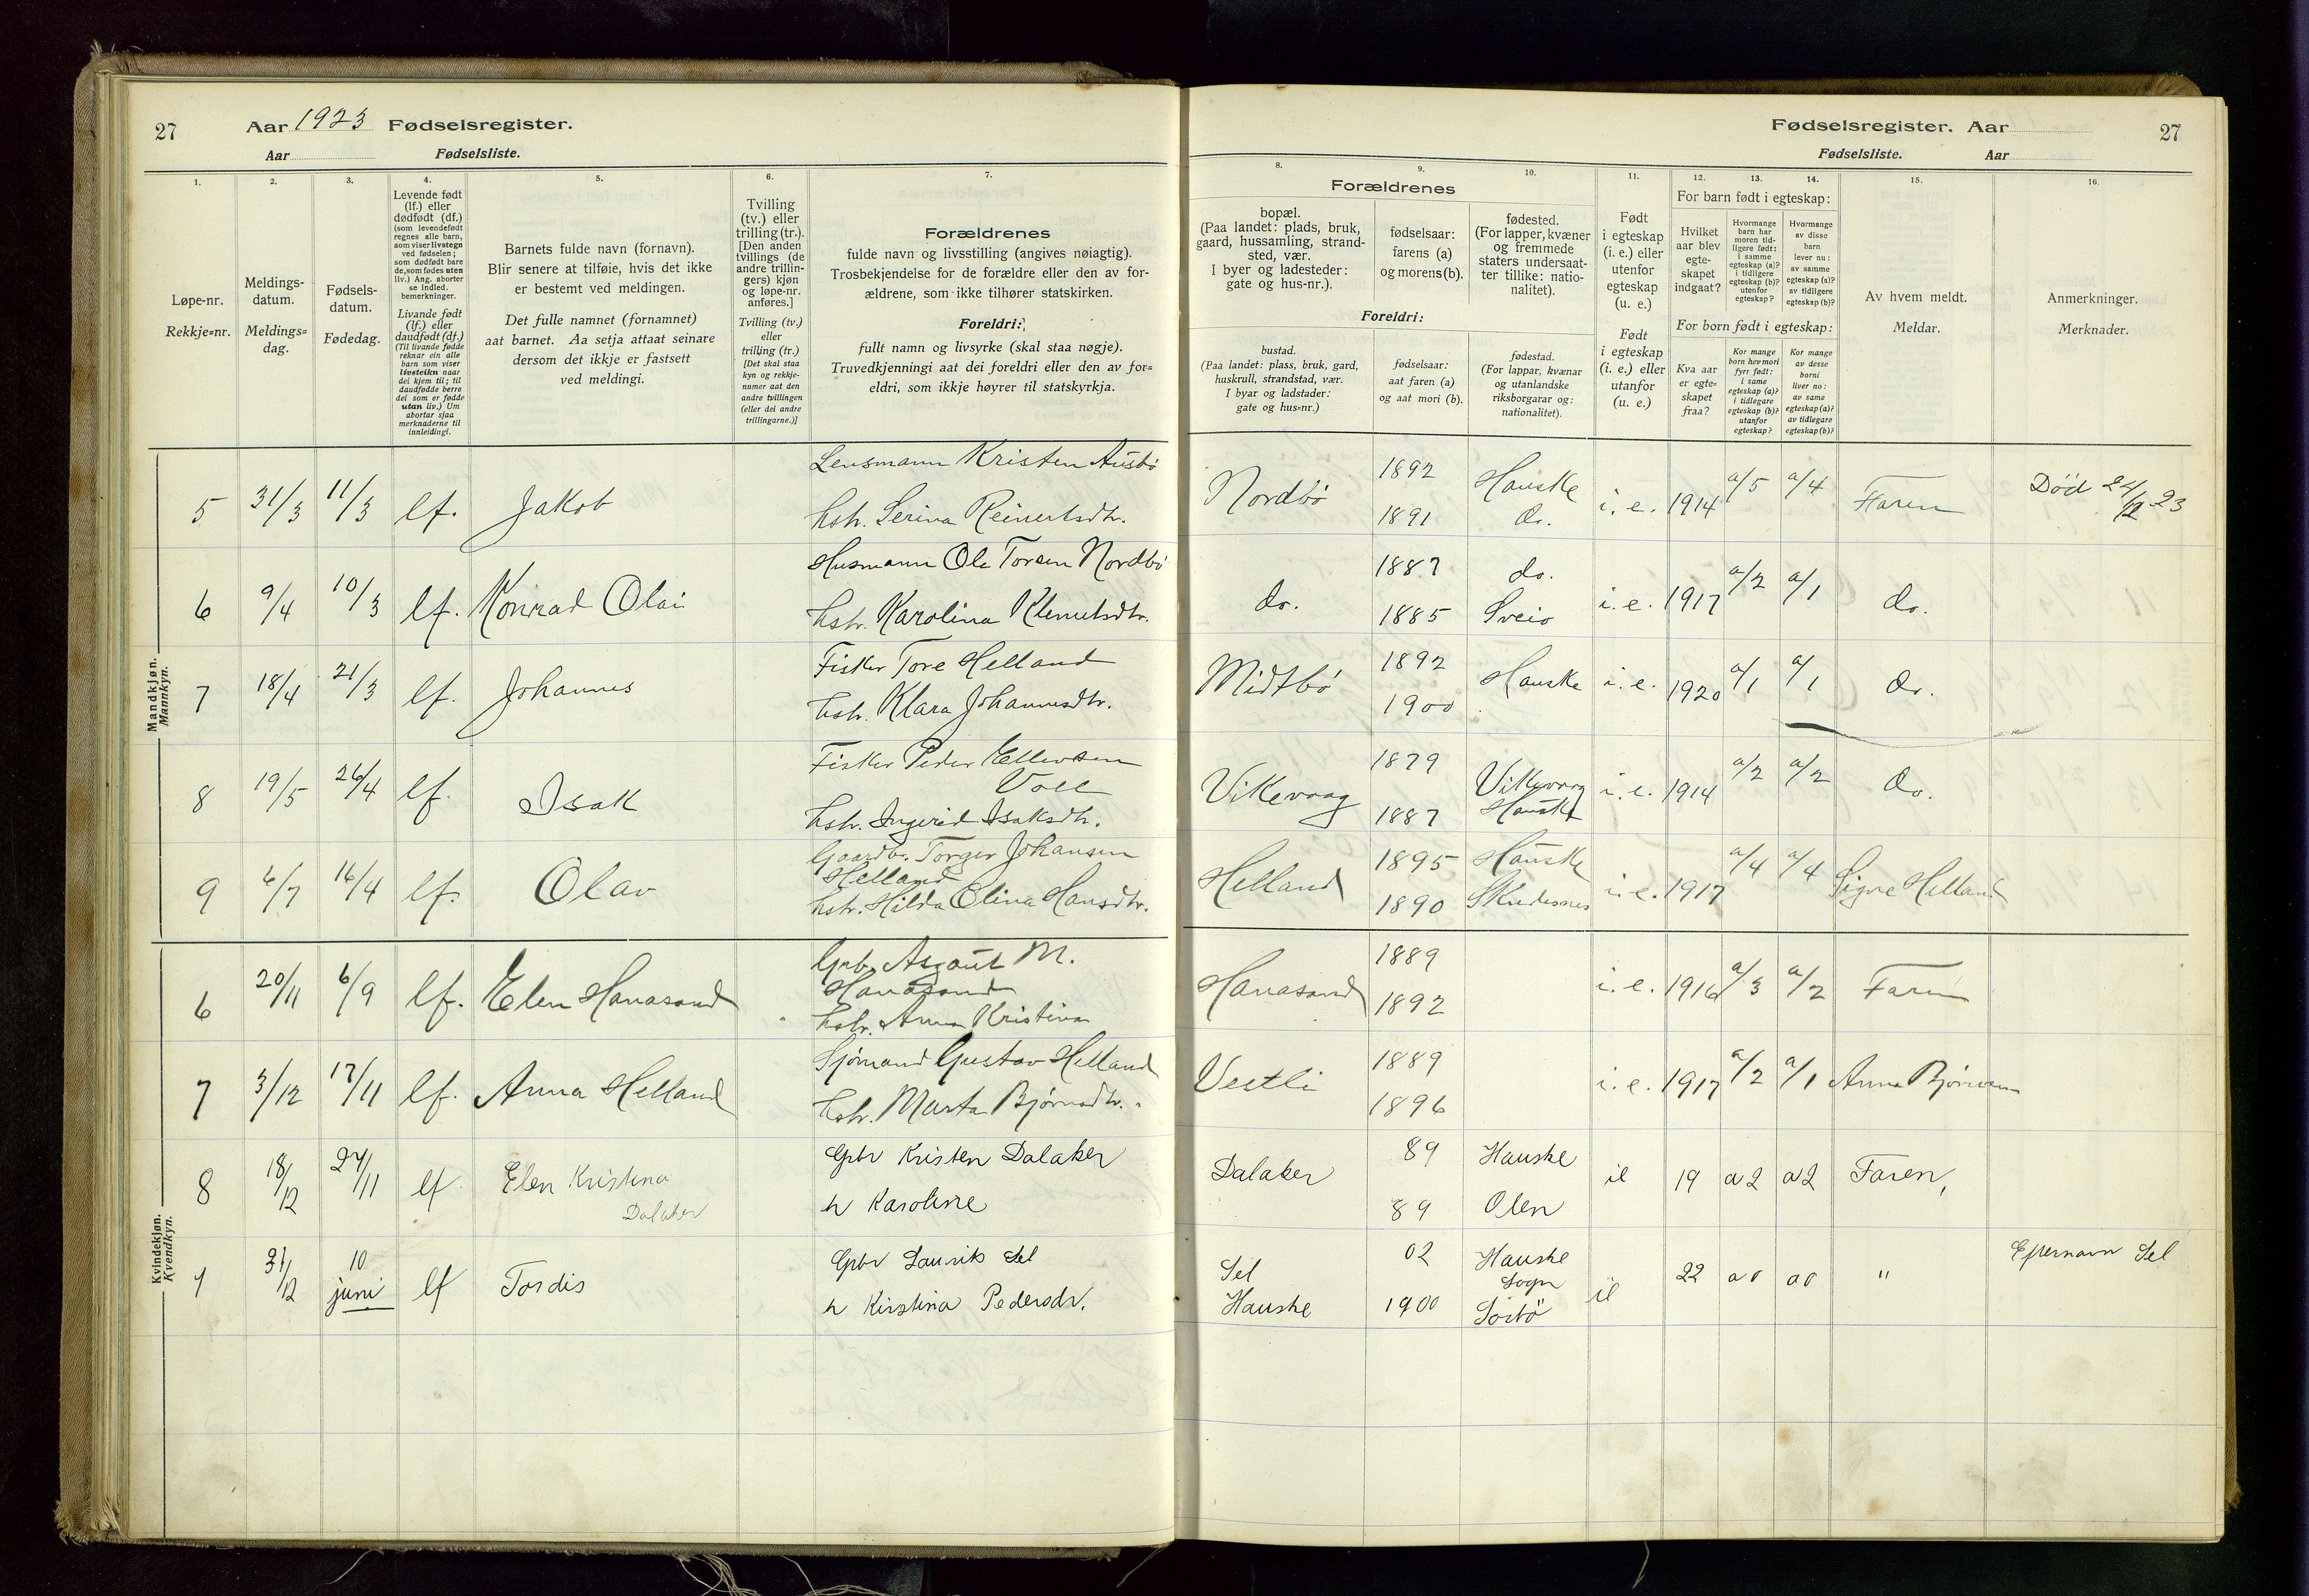 27 Aar 1923 Fødselsregister.
Aar Fødselsliste.
Fødselsregister. Aar 27
Fødselsliste. Aar
1. 2. 3. 4. 5. 6. 7. 8. 9. 10. 11. 12. 13. 14. 15. 16.
Løpe-nr.
Rekkje=nr.
Meldings-
datum.
Meldings=
dag.
Fødsels-
datum.
Fødedag.
Levende født
(lf.) eller
dødfødt (df.)
(som levendefødt
regnes alle barn,
som viser livstegn
ved fødselen;
som dødfødt bare
de, som fødes uten
liv.) Ang. aborter
se indled.
bemerkninger.
Livande født
(lf.) eller
daudfødt (df.)
(Til livande fødde
reknar ein alle
barn som viser
livsteikn naar
dei kjem til; til
daudfødde berre
dei som er fødde
utan liv.) Um
abortar sjaa
merknaderne til
innleidingi.
Barnets fulde navn (fornavn).
Blir senere at tilføie, hvis det ikke
er bestemt ved meldingen.
Det fulle namnet (fornamnet)
aat barnet. Aa setja attaat seinare
dersom det ikkje er fastsett
ved meldingi.
Tvilling
(tv.) eller
trilling (tr.).
[Den anden
tvillings (de
andre trillin-
gers) kjøn
og løpe-nr.
anføres.]
Tvilling (tv.)
eller
trilling (tr.)
[Det skal staa
kyn og rekkje-
numer aat den
andre tvillingen
(eller dei andre
trillingarne.)]
Forældrenes
fulde navn og livsstilling (angives nøiagtig).
Trosbekjendelse for de forældre eller den av for-
ældrene, som ikke tilhører statskirken.
Foreldri:
fullt namn og livsyrke (skal staa nøgje).
Truvedkjenningi aat dei foreldri eller den av for=
eldri, som ikkje høyrer til statskyrkja.
Forældrenes
bopæl.
(Paa landet: plads, bruk,
gaard, hussamling, strand-
sted, vær.
I byer og ladesteder:
gate og hus-nr.).
fødselsaar:
farens (a)
og morens (b).
fødested.
(For lapper, kvæner
og fremmede
staters undersaat-
ter tillike: natio-
nalitet).
Foreldri:
bustad.
(Paa landet: plass, bruk, gard,
huskrull, strandstad, vær.
I byar og ladstader:
gate og hus=nr.)
fødselsaar:
aat faren (a)
og aat mori (b).
fødestad.
(For lappar, kvænar
og utanlandske
riksborgarar og:
nationalitet).
Født
i egteskap
(i. e.) eller
utenfor
egteskap
(u. e.)
Født
i egteskap
(i. e.) eller
utanfor
(u. e.)
For barn født i egteskap:
Hvilket
aar blev
egte-
skapet
indgaat?
Hvormange
barn har
moren tid-
ligere født:
i samme
egteskap (a)?
i tidligere
egteskap (b)?
utenfor
egteskap?
Hvormange
av disse
barn
lever nu:
av samme
egteskap (a)?
av tidligere
egteskap (b)?
For born født i egteskap:
Kva aar
er egte=
skapet
fraa?
Kor mange
born hev mori
fyrr født:
i same
egteskap (a)?
i tidlegare
egteskap (b)?
utanfor
egteskap?
Kor mange
av desse
borni
liver no:
av same
egteskap (a)?
av tidlegare
egteskap (b)?
Av hvem meldt.
Meldar.
Anmerkninger.
Merknader.
Mandkjøn.
Mannkyn.
5 31/3 11/3 lf. Jakob Lensmann Kristen Austbø
hstr. Serina Reinertsdtr.
Nordbø 1892 Hauske i. e. 1914 a/5 a/4 Faren Død 24/12 23
1891 do.
6 9/4 10/3 lf. Konrad Olai Husmann Ole Torsen Nordbø
hstr. Karolina Klemetsdtr.
do. 1887 do. i. e. 1917 a/2 a/1 do.
1885 Sveio
7 18/4 21/3 lf. Johannes Fisker Tore Helland
hstr. Klara Johannesdtr.
Midtbø 1892 Hauske i. e. 1920 a/1 a/1 do.
1900
8 19/5 26/4 lf. Isak Fisker Peder Ellevsen
Voll
hstr. Ingerid Isaksdtr.
Vikevaag 1879 Vikevaag i. e. 1914 a/2 a/2 do.
1887 Hauske
9 6/7 16/4 lf. Olav Gaardbr. Torger Johansen
Helland
hstr. Hilda Olina Hansdtr.
Helland 1895 Hauske i. e. 1917 a/4 a/4 Signe Helland
1890 Skudesnes
Kvindekjøn.
Kvendkyn.
6 20/11 6/9 lf. Elen Hanasand Grbr. Asgaut M.
Hanasand
hstr. Anna Kristina
Hanasand 1889 i. e. 1916 a/3 a/2 Faren
1892
7 3/12 17/11 lf. Anna Helland Sjømand Gustav Helland
hstr. Marta Bjørnsdtr.
Vestli 1889 i. e. 1917 a/2 a/1 Anna
1896
8 18/12 27/11 lf Elen Kristina
Dalaker
Grbr Kristen Dalaker
h Karoline
Dalaker 89 Hauske ie 19 a 2 a 2 Faren,
89 Ølen
31/12 10
juni lf Tordis Grbr Laurits Sel
h Kirstina Pedersdr.
Sel
Hauske 02 Hauske
Sogn
1900 ie 22 a 0 a 0 " Efternavn Sel